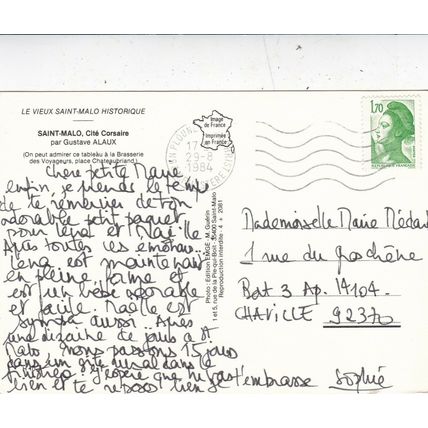 LE VIEUX SAINT-MALO HISTORIQUE
SAINT-MALO, Cité Corsaire
par Gustave ALAUX
(On peut admirer ce tableau à la Brasserie
des Voyageurs, place Chateaubriand.)
Chère petite Marie
enfin, je prends le temps
de te remercier de ton
adorable petit paquet
pour Lena et Maëlle
Après toutes les émotions
Lena est maintenant
en pleine forme et
est un bébé adorable
et facile. Maëlle est
sympa aussi.. Après
une dizaine de jours à St
Malo nous passons 15 jours
dans un gîte rural dans le
J'espère que tu vas
bien et te reposes bien
t'embrasse Sophie
Image
de France
Imprimée
en France
17
29-8
1984
1,70
REPUBLIQUE FRANÇAISE
Photo : Édition EMGE - M. Guérin
1 et 5, rue de la Pie-qui-Boit - 35400 Saint-Malo
Reproduction interdite - 4 + 2081
Mademoiselle Marie Médard
1 rue du
Bat 3 Ap. 14104
CHAVILLE 92370